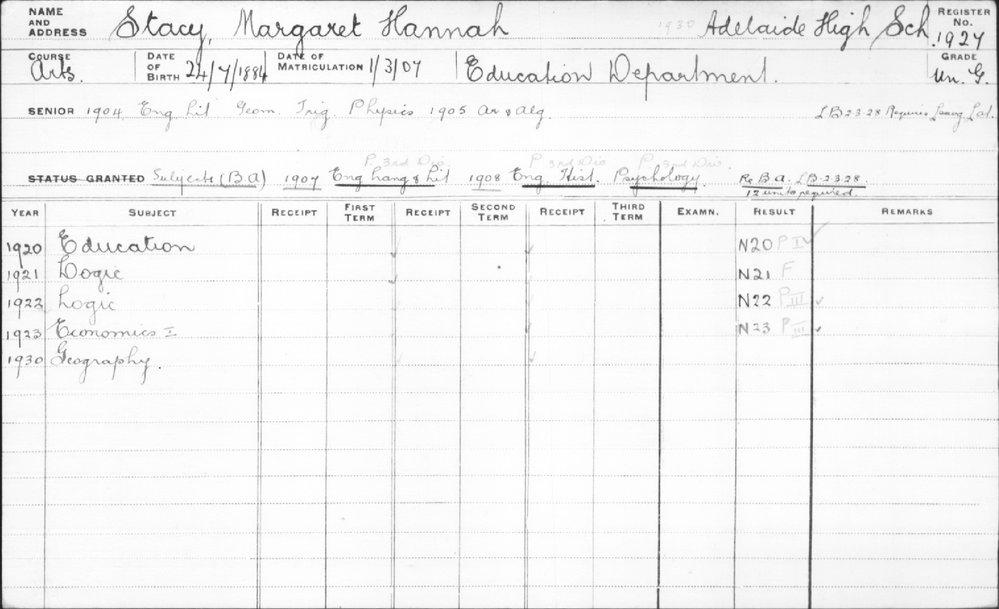 NAME AND ADDRESS Stacy, Margaret Hannah 1930 Adelaide High Sch. REGISTER No. 1927
COURSE Arts. DATE OF BIRTH 24/7/1884 DATE OF MATRICULATION 1/3/07 Education Department. GRADE Un. G.
SENIOR 1904 Eng Lit Geom. Trig. Physics 1905 Ar & Alg. LB 2.3.28 Requires Leavg Lat.
P 3rd Div P 3rd Div P 3rd Div
STATUS GRANTED Subjects (B A) 1907 Eng Lang & Lit 1908 Eng. Hist. Psychology. Re B A. LB 2.3.28.
12 units required.
YEAR SUBJECT RECEIPT FIRST TERM RECEIPT SECOND TERM RECEIPT THIRD TERM EXAMN. RESULT REMARKS
1920 Education N20 P II
1921 Logic N21 F
1922 Logic N22 P III
1923 Economics I N23 P III
1930 Geography.